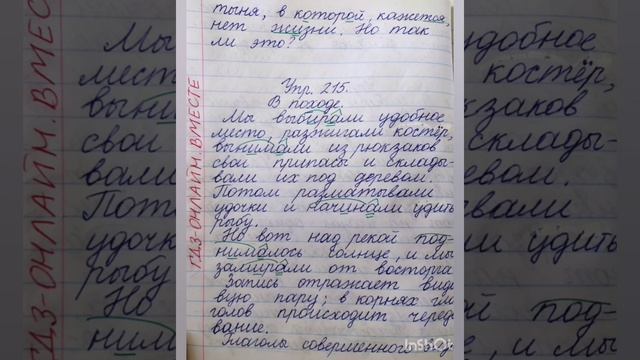 тыня, в которой, кажется,
нет жизни. Но так
ли это?
Упр. 215.
В походе.
Мы выбирали удобное
место, разжигали костёр,
вынимали из рюкзаков
свои припасы и складывали
вали их под деревом.
Потом разматывали
удочки и начинали удить
рыбу.
Но вот над рекой под-
нималось солнце, и мы
замирали от восторга
Запись отражает вид
вую пару; в корнях гла
голов происходит черед
вание.
Глаголы совершенного
ГДЗ-ОНЛАЙН.ВМЕСТЕ